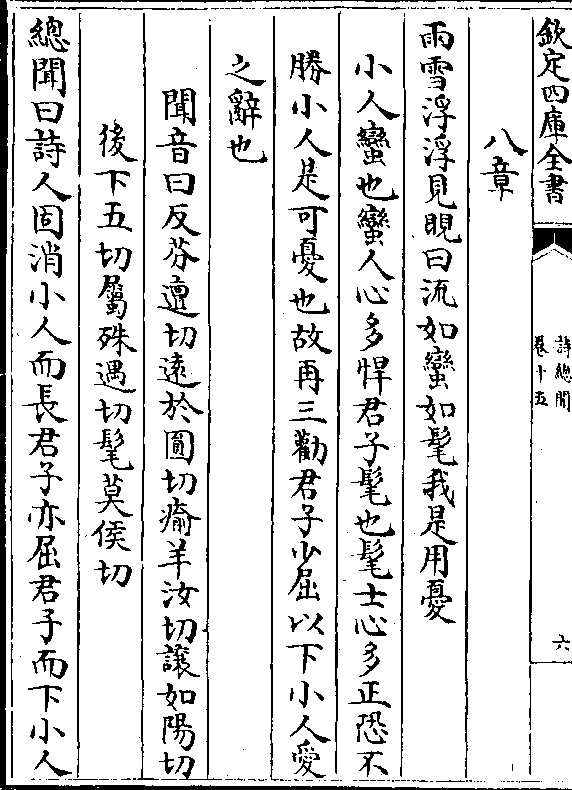 欽定四庫全書
詩總聞
卷十五
六
八章
雨雪浮浮見晛曰流如蠻如髦我是用憂
小人蠻也蠻人心多悍君子髦也髦士心多正恐不
勝小人是可憂也故再三勸君子少屈以下小人愛
之辭也
聞音曰反芬邅切遠於圓切瘉羊汝切讓如陽切
後下五切屬殊遇切髦莫侯切
總聞曰詩人固消小人而長君子亦屈君子而下小人